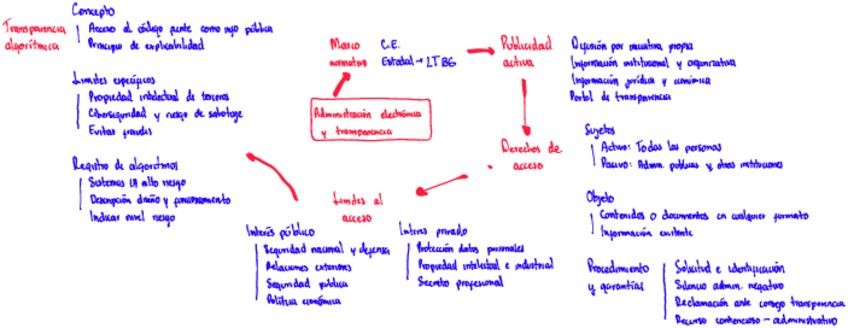 Transparencia
algorítmica
Concepto
Acceso al código fuente como info pública
Principio de explicabilidad
Límites específicos
Propiedad intelectual de terceros
Ciberseguridad y riesgo de sabotaje
Evitar fraudes
Registro de algoritmos
Sistemas IA alto riesgo
Descripción diseño y funcionamiento
Indicar nivel riesgo
Marco
normativo
C.E.
Estatal → LTBG
Administración electrónica
y transparencia
Publicidad
activa
Difusión por iniciativa propia
Información institucional y organizativa
Información jurídica y económica
Portal de transparencia
Derechos de
acceso
Sujetos
Activo: Todas las personas
Pasivo: Admin. públicas y otras instituciones
Objeto
Contenidos o documentos en cualquier formato
Información existente
Procedimiento
y garantías
Solicitud e identificación
Silencio admin. negativo
Reclamación ante consejo transparencia
Recurso contencioso-administrativo
Límites al
acceso
Interés público
Seguridad nacional y defensa
Relaciones exteriores
Seguridad pública
Política económica
Interés privado
Protección datos personales
Propiedad intelectual e industrial
Secreto profesional